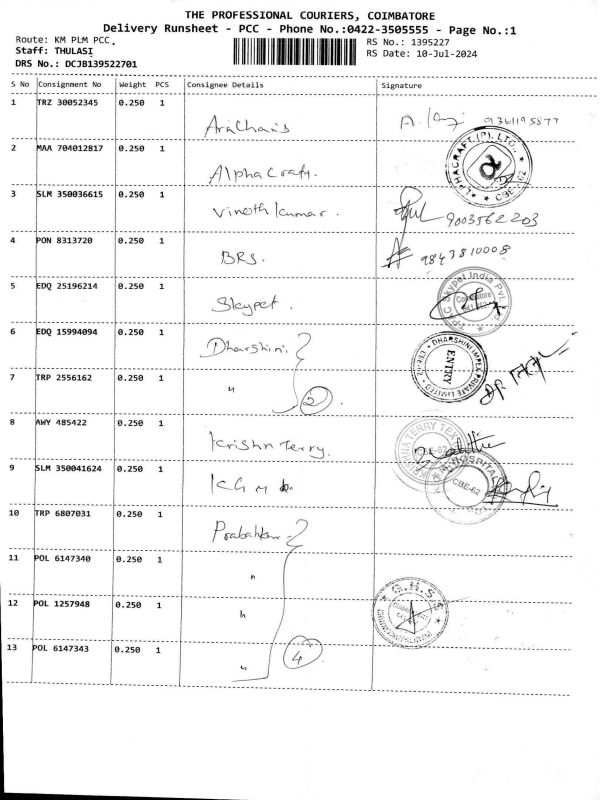 THE PROFESSIONAL COURIERS, COIMBATORE
Delivery Runsheet - PCC - Phone No.:0422-3505555 - Page No.:1
Route: KM PLM PCC.
RS No.: 1395227
Staff: THULASI
RS Date: 10-Jul-2024
DRS No.: DCJB139522701
S No Consignment No Weight PCS Consignee Details Signature
1 TRZ 30052345 0.250 1
9361195877
2 MAA 704012817 0.250 1 Alpha Craft.
ALPHACRAFT (P). LTD., CBE-62
3 SLM 350036615 0.250 1 Vinoth kumar. 9003562203
4 PON 8313720 0.250 1 BRS. 9843810008
5 EDQ 25196214 0.250 1 Skypet.
Skypet India Pvt Coimbatore
6 EDQ 15994094 0.250 1 Dharshini.
DHARSHINI IMPEX PRIVATE LIMITED ENTRY
7 TRP 2556162 0.250 1 " 2
8 AWY 485422 0.250 1 Krishn Terry.
9 SLM 350041624 0.250 1 KGM
HOSPITAL CBE-62
10 TRP 6807031 0.250 1 Prabahkar
11 POL 6147340 0.250 1 "
12 POL 1257948 0.250 1 "
G.H.S.S
13 POL 6147343 0.250 1 " 4